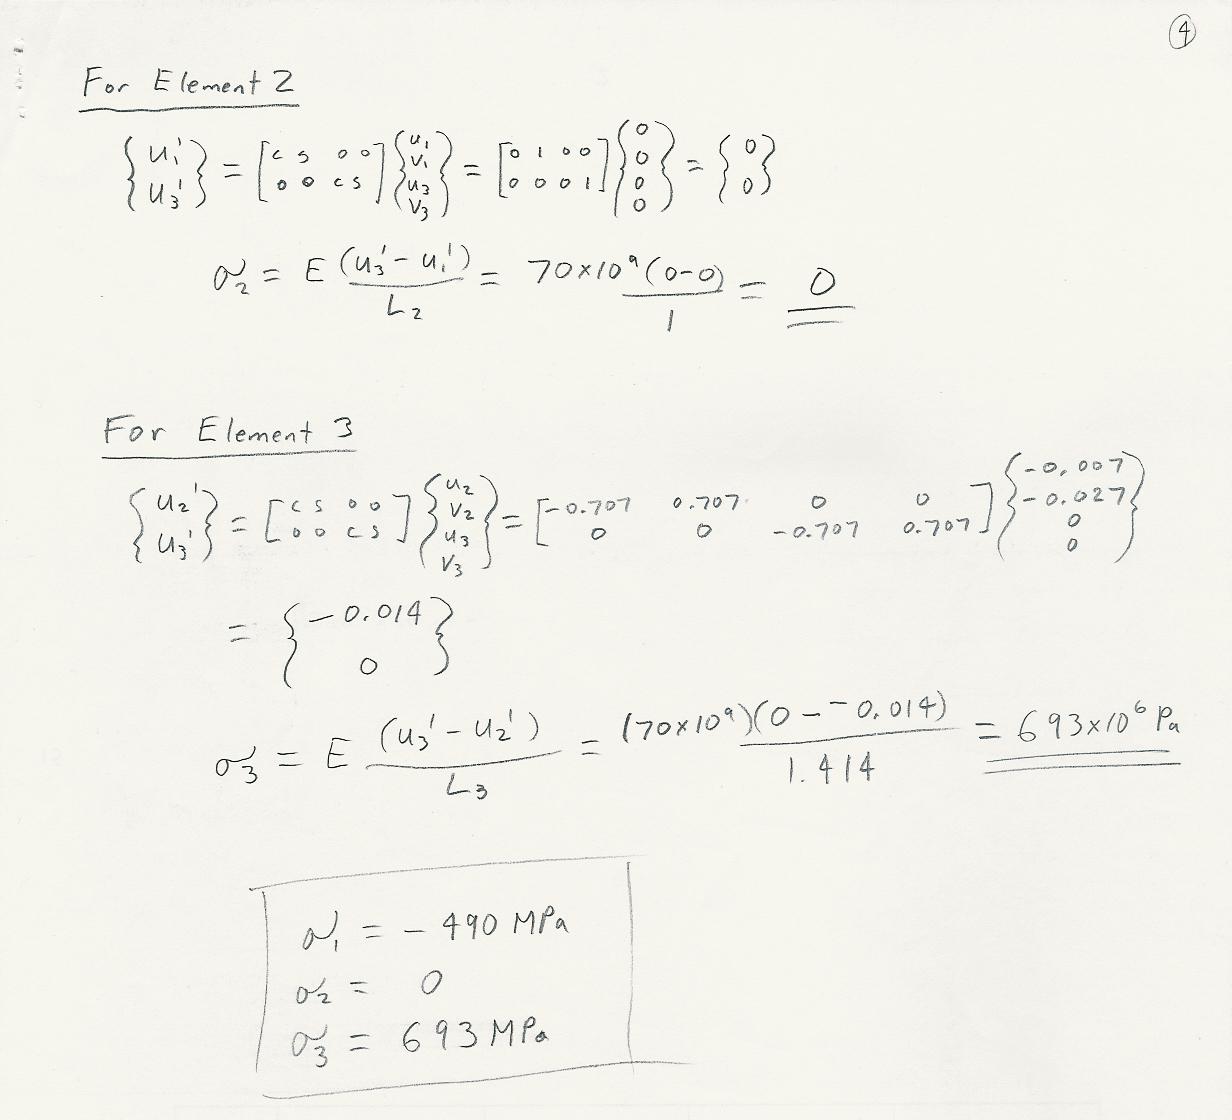 ④
For Element 2
{u₁' u₃'} = [c s 0 0 0 0 c s] {u₁ v₁ u₃ v₃} = [0 1 0 0 0 0 0 1] {0 0 0 0} = {0 0}
σ₂ = E (u₃' - u₁') / L₂ = 70×10⁹ (0-0) / 1 = 0
For Element 3
{u₂' u₃'} = [c s 0 0 0 0 c s] {u₂ v₂ u₃ v₃} = [-0.707 0.707 0 0 0 0 -0.707 0.707] {-0.007 -0.027 0 0}
= {-0.014 0}
σ₃ = E (u₃' - u₂') / L₃ = (70×10⁹)(0 - -0.014) / 1.414 = 693×10⁶ Pa
σ₁ = - 490 MPa
σ₂ = 0
σ₃ = 693 MPa